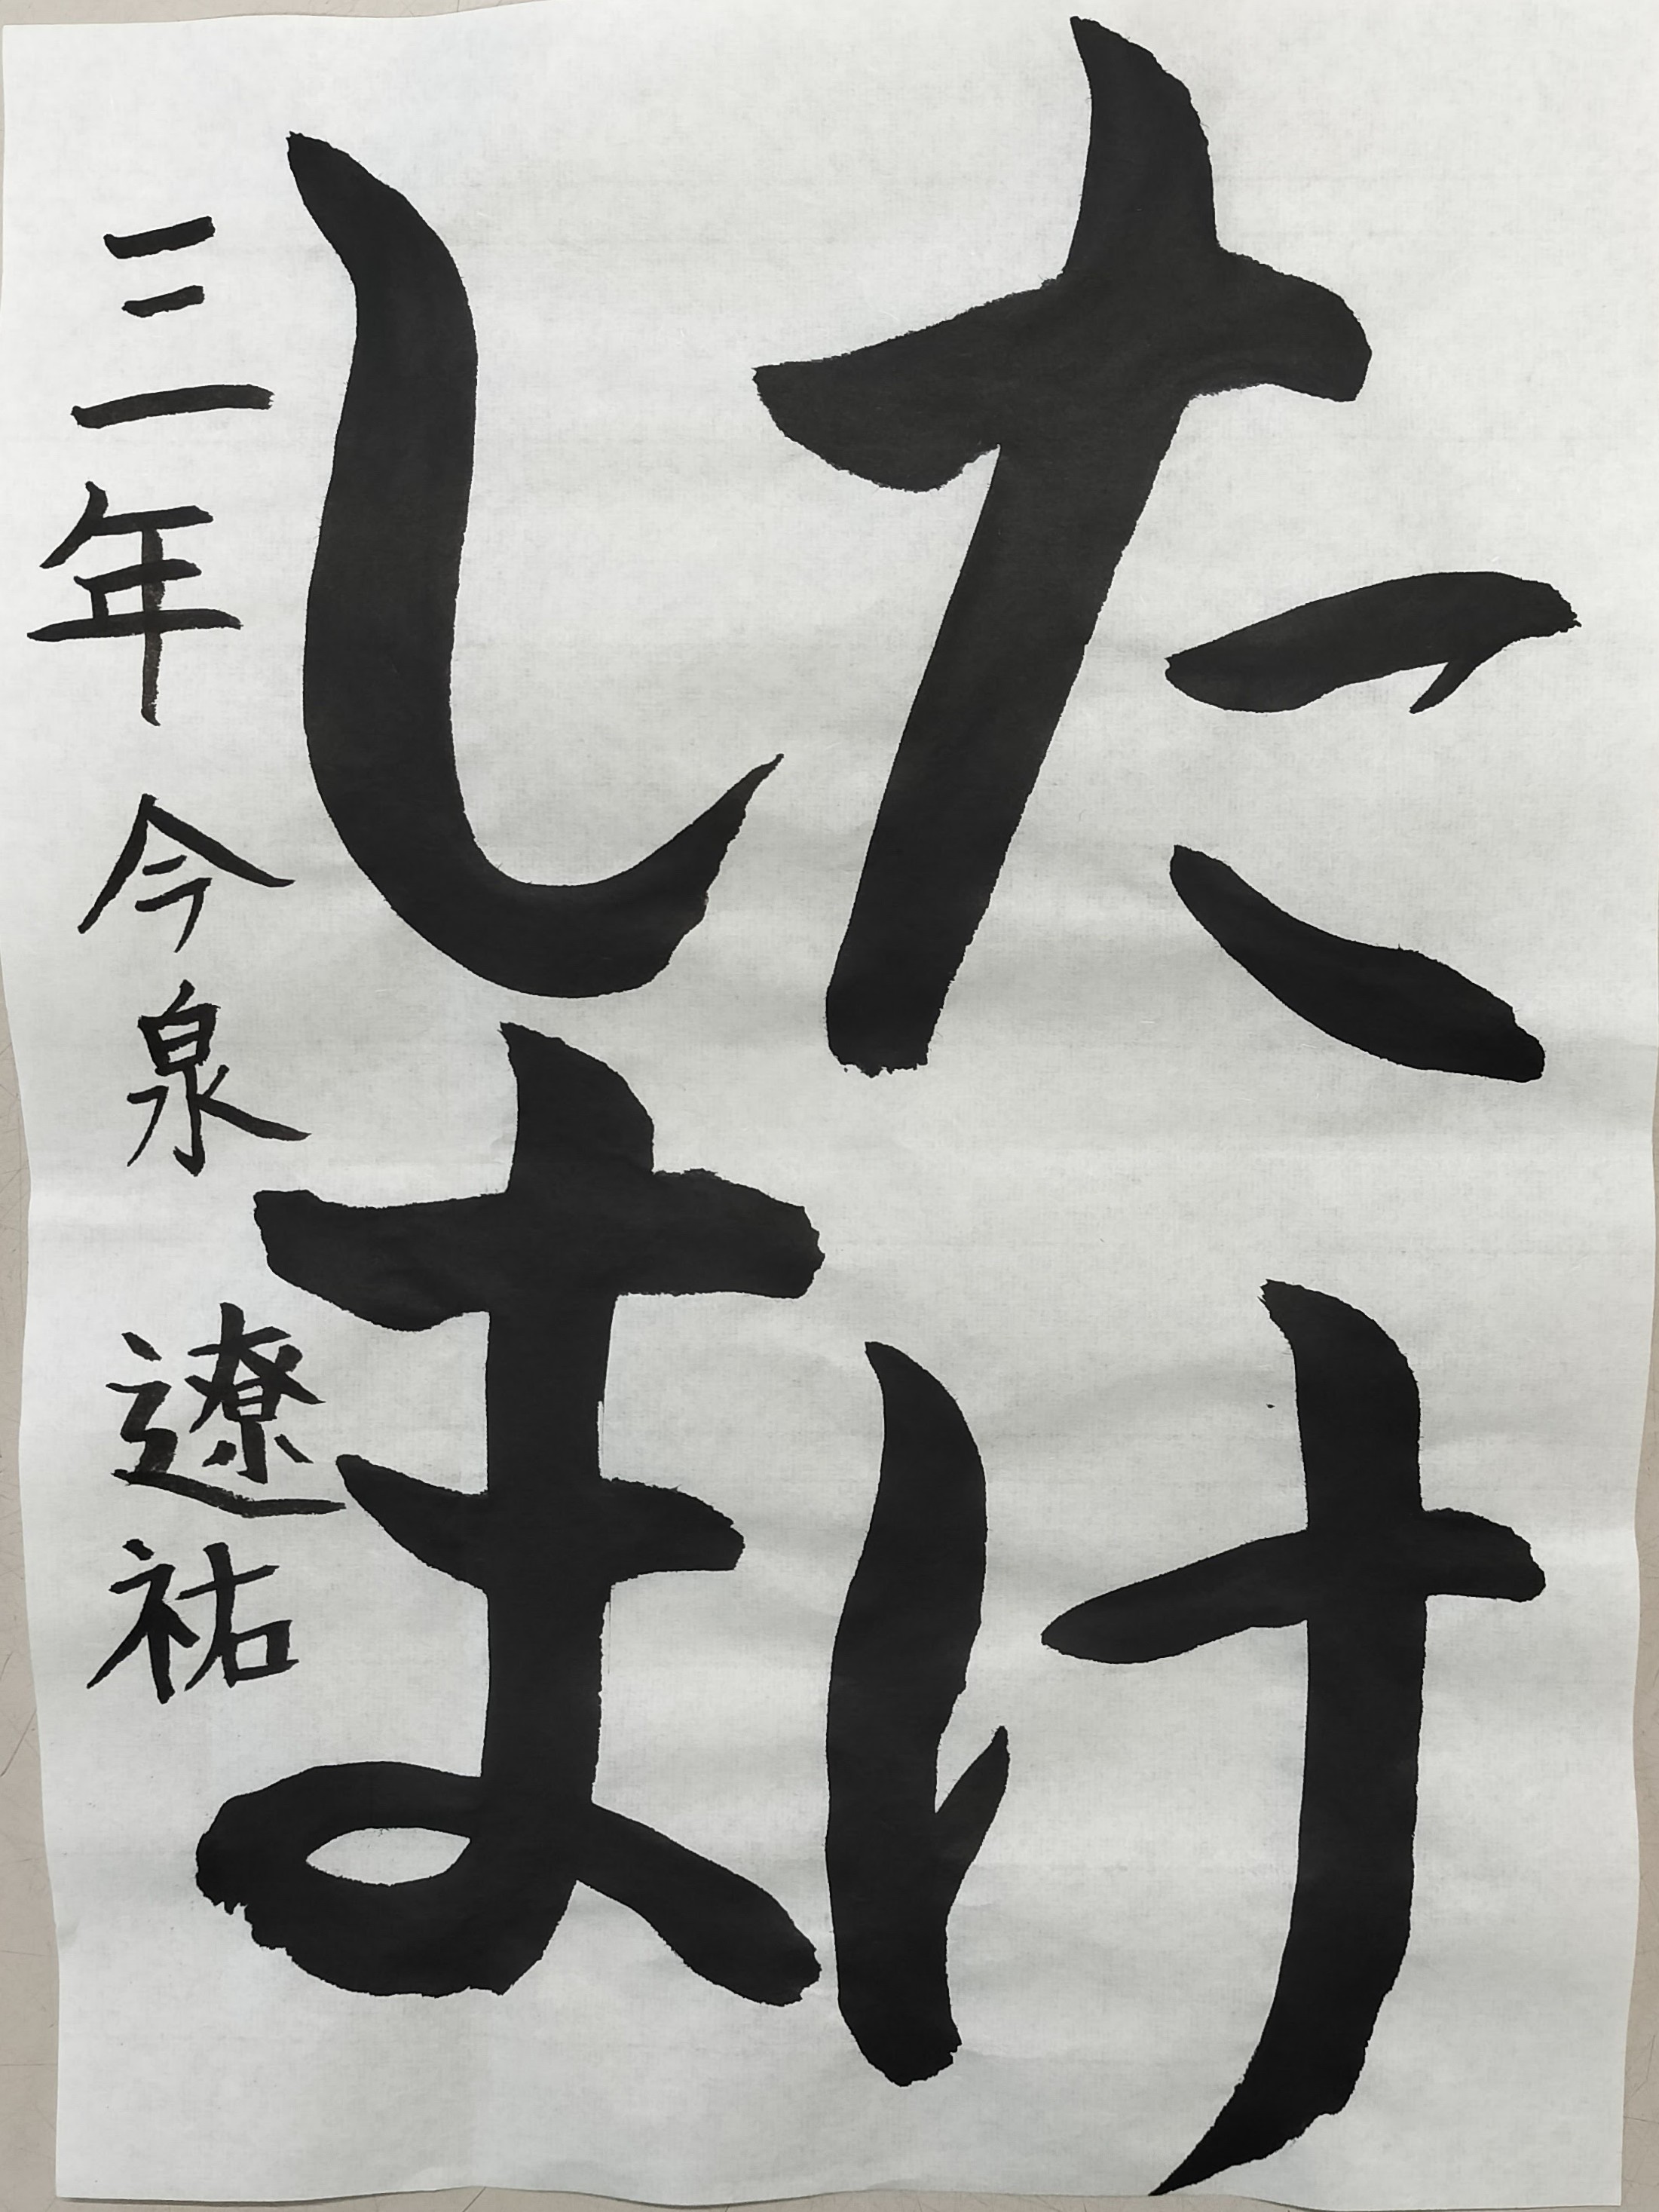 たけ
しま
三年 今泉 遼祐